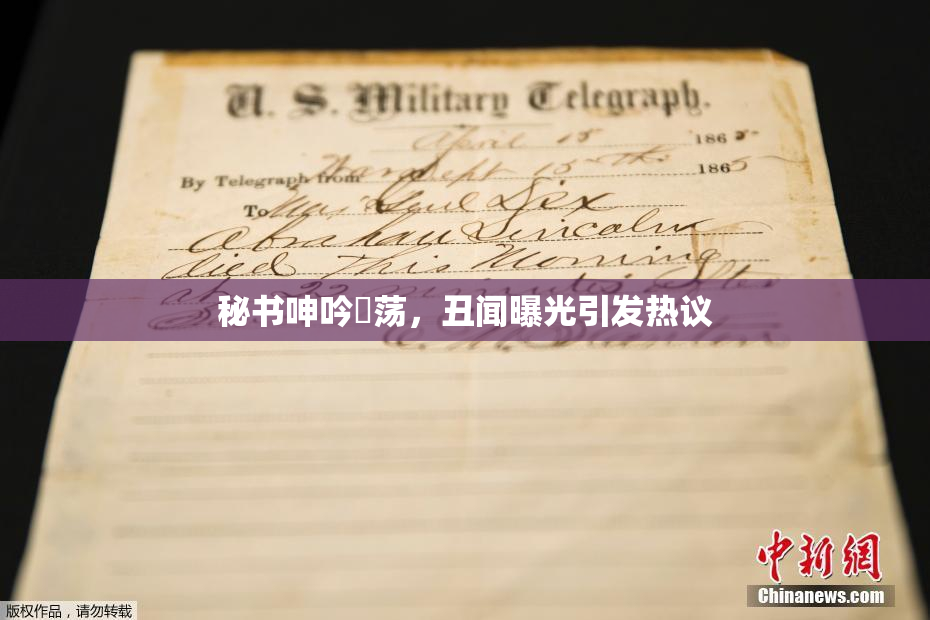 U. S. Military Telegraph.
April 15 1865
By Telegraph from War Dept 15th 1865
To Maj Genl Dix
Abraham Lincoln
died This Morning
at 22 minutes after
秘书呻吟荡，丑闻曝光引发热议
E. M. Stanton
中新网
Chinanews.com
版权作品，请勿转载